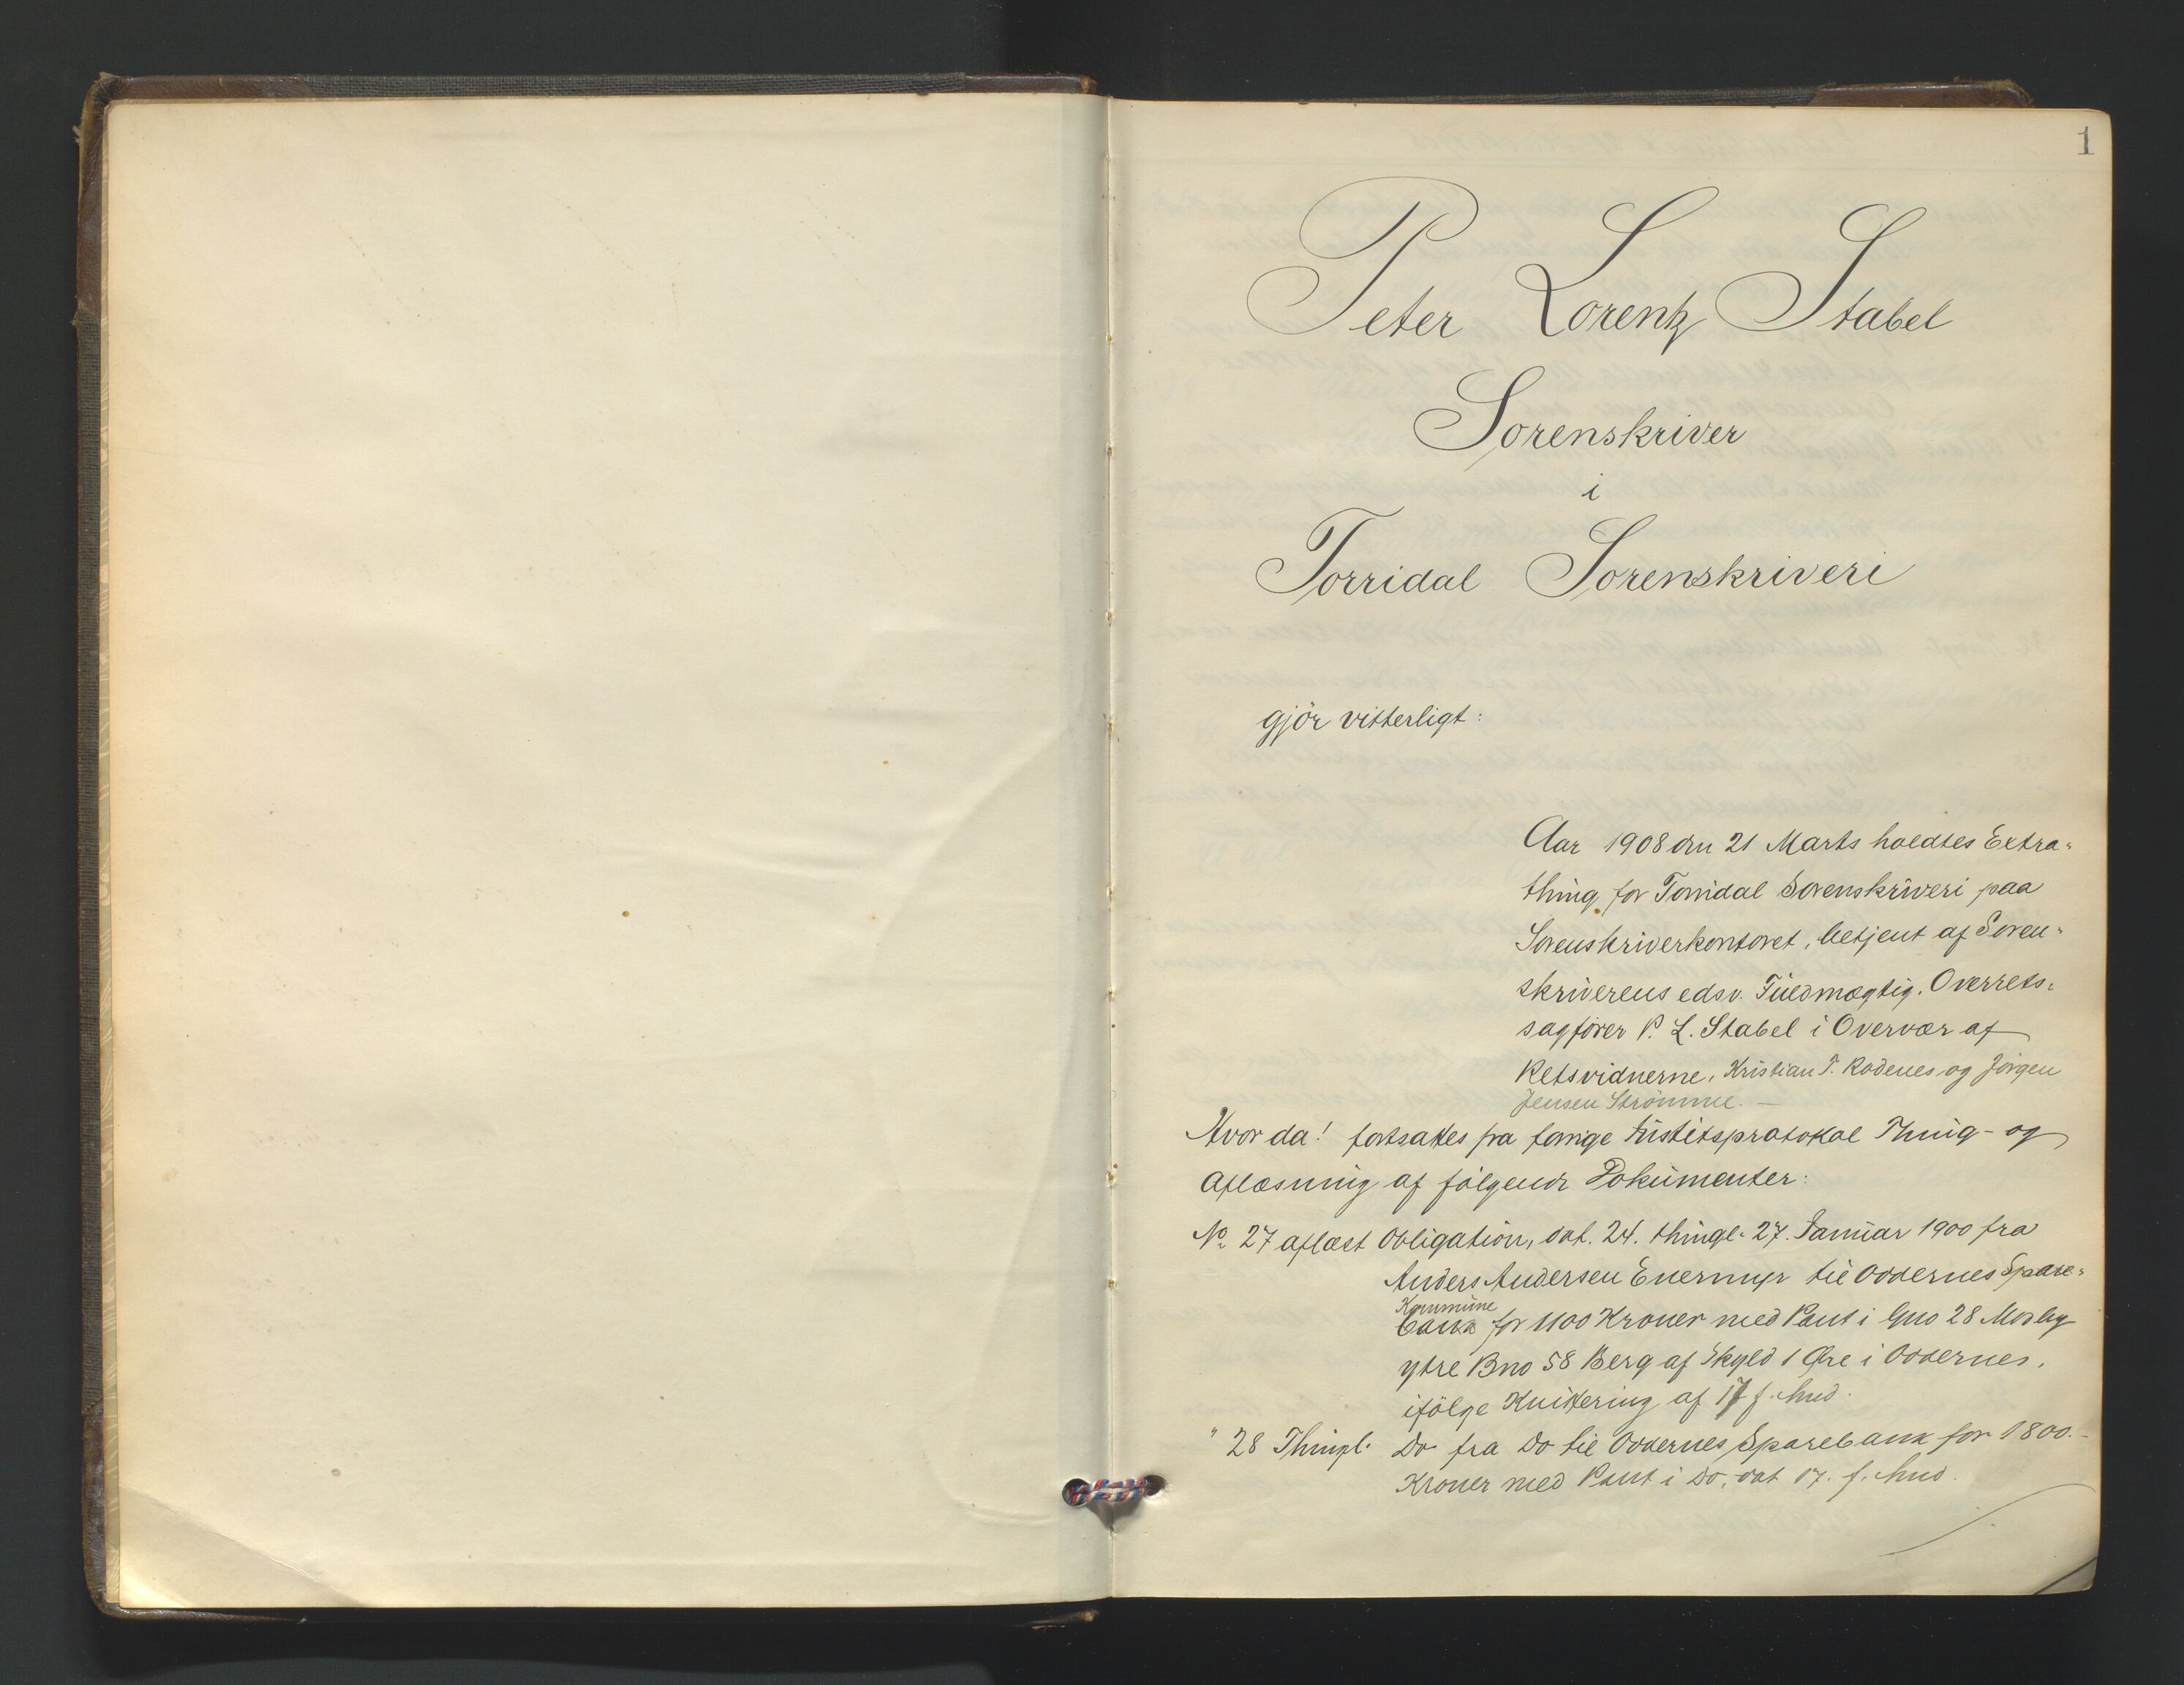 1
Peter Lorentz Stabel
Sorenskriver
i
Torridal Sorenskriveri
gjör vitterligt:
Aar 1908 den 21 Marts holdtes Extra-
thing for Torridal Sorenskriveri paa
Sorenskriverkontoret, betjent af Soren-
skriverens edsv. Fuldmægtig, Overrets-
sagfører P. L. Stabel i Overvær af
Retsvidnerne, Kristian T. Rodenes og Jörgen
Jensen Strömme. —
Hvor da! fortsattes fra forrige Justitsprotokol Thing- og
Aflæsning af følgende Dokumenter:
No 27 aflæst Obligation, dat. 24. thingl. 27. Januar 1900 fra
Anders Andersen Enermyr til Oddernes Spare-
Kommune
bank for 1100 Kroner med Pant i Gno 28 Mosby
ytre Bno 58 Berg af Skyld 1 Øre i Oddernes,
ifölge Kvittering af 17 f. Mnd.
" 28 Thingl. Do fra Do til Oddernes Sparebank for 1800.-
Kroner med Pant i Do, dat 17. f. Mnd.